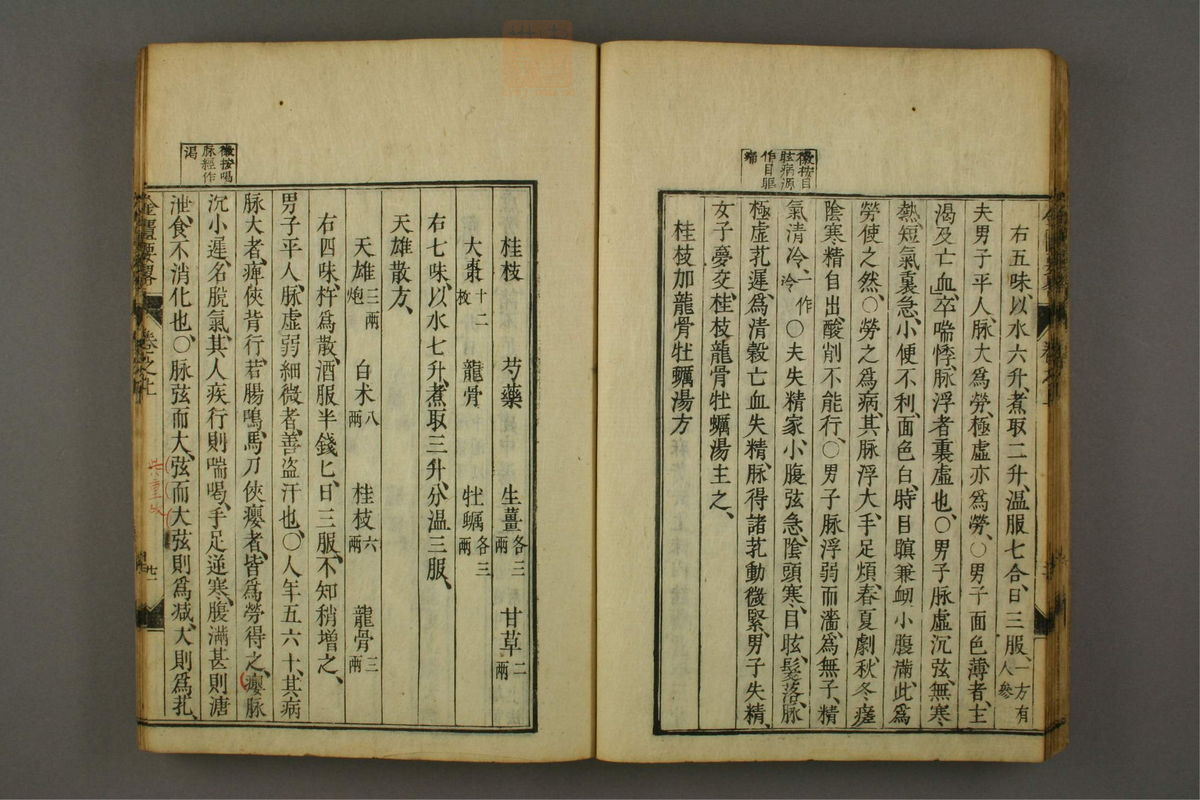 徽按目
眩病源
作目眶
痛
右五味、以水六升、煮取二升、温服七合、日三服、一方有人參
夫男子平人、脉大爲勞、極虛亦爲勞、○男子面色薄者、主
渴及亡血、卒喘悸、脉浮者裏虛也、○男子脉虛沉弦、無寒
熱、短氣裏急、小便不利、面色白、時目瞑兼衂、小腹滿、此爲
勞使之然、○勞之爲病、其脉浮大、手足煩、春夏劇、秋冬瘥
陰寒精自出、酸削不能行、○男子脉浮弱而濇、爲無子、精
氣清冷、一作冷○夫失精家、小腹弦急、陰頭寒、目眩、髮落、脉
極虛芤遲、爲清穀亡血失精、脉得諸芤動微緊、男子失精、
女子夢交、桂枝龍骨牡蠣湯主之、
桂枝加龍骨牡蠣湯方
徽按喝
脉經作
渴
桂枝 芍藥 生薑各三兩 甘草二兩
大棗十二枚 龍骨 牡蠣各三兩
右七味、以水七升、煮取三升、分温三服、
天雄散方、
天雄三兩炮 白术八兩 桂枝六兩 龍骨三兩
右四味、杵爲散、酒服半錢匕、日三服、不知稍增之、
男子平人、脉虛弱細微者、善盗汗也、○人年五六十、其病
脉大者、痺俠背行、若腸鳴、馬刀俠癭者、皆爲勞得之、癭脉
沉小遲、名脫氣、其人疾行則喘喝、手足逆寒、腹滿甚則溏
泄、食不消化也、○脉弦而大、弦而大、弦則爲減、大則爲芤、
金匱要畧 卷之上